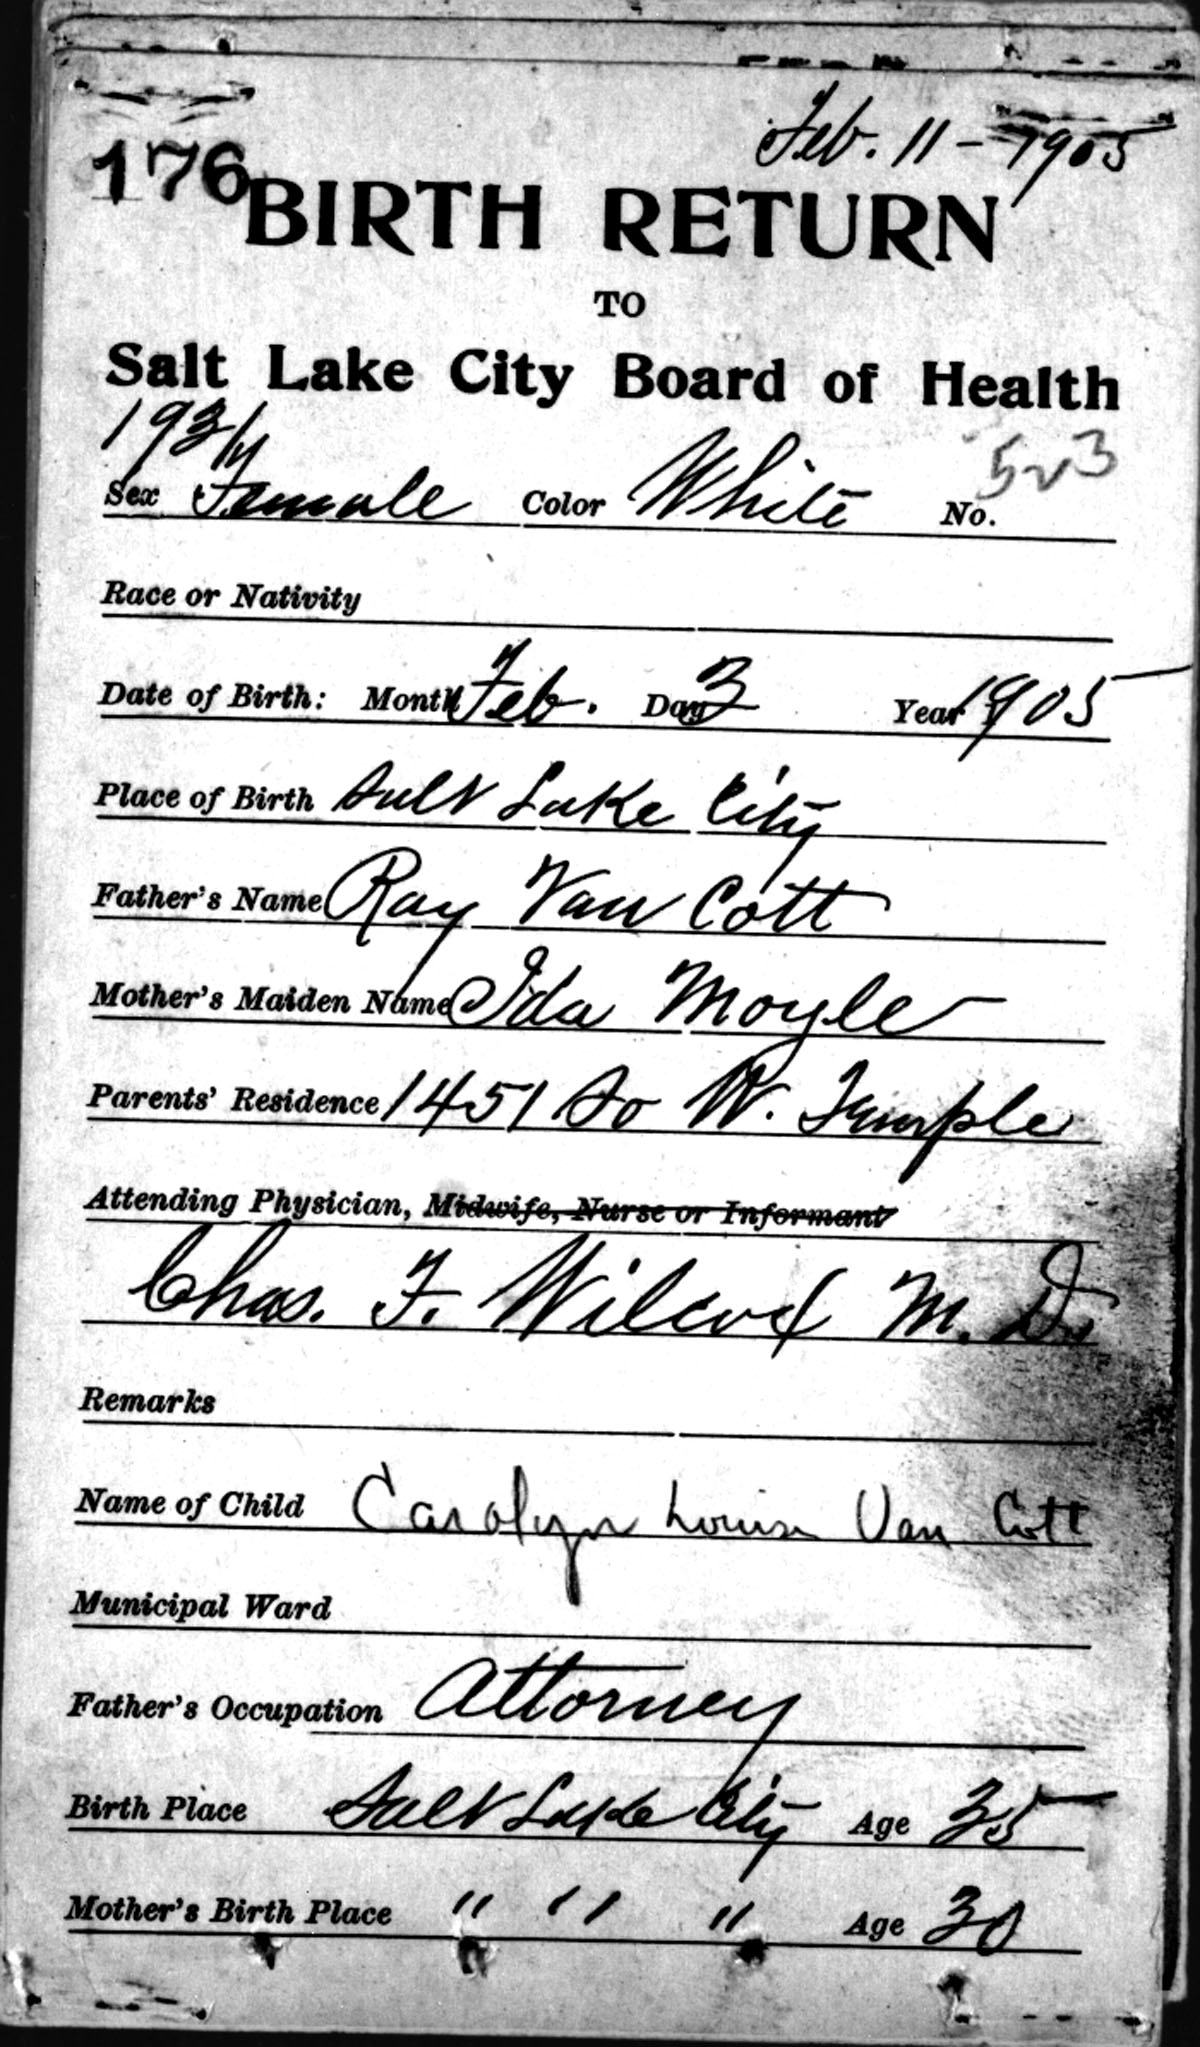 Feb. 11 - 1905
176
BIRTH RETURN
TO
Salt Lake City Board of Health
523
Sex Female Color White No.
Race or Nativity
Date of Birth: Month Feb. Day 3 Year 1905
Place of Birth Salt Lake City
Father's Name Ray Van Cott
Mother's Maiden Name Ida Moyle
Parents' Residence 1451 So W. Temple
Attending Physician, Midwife, Nurse or Informant
Chas. F. Wilcox M. D.
Remarks
Name of Child Carolyn Louise Van Cott
Municipal Ward
Father's Occupation Attorney
Birth Place Salt Lake City Age 35
Mother's Birth Place " " " Age 30